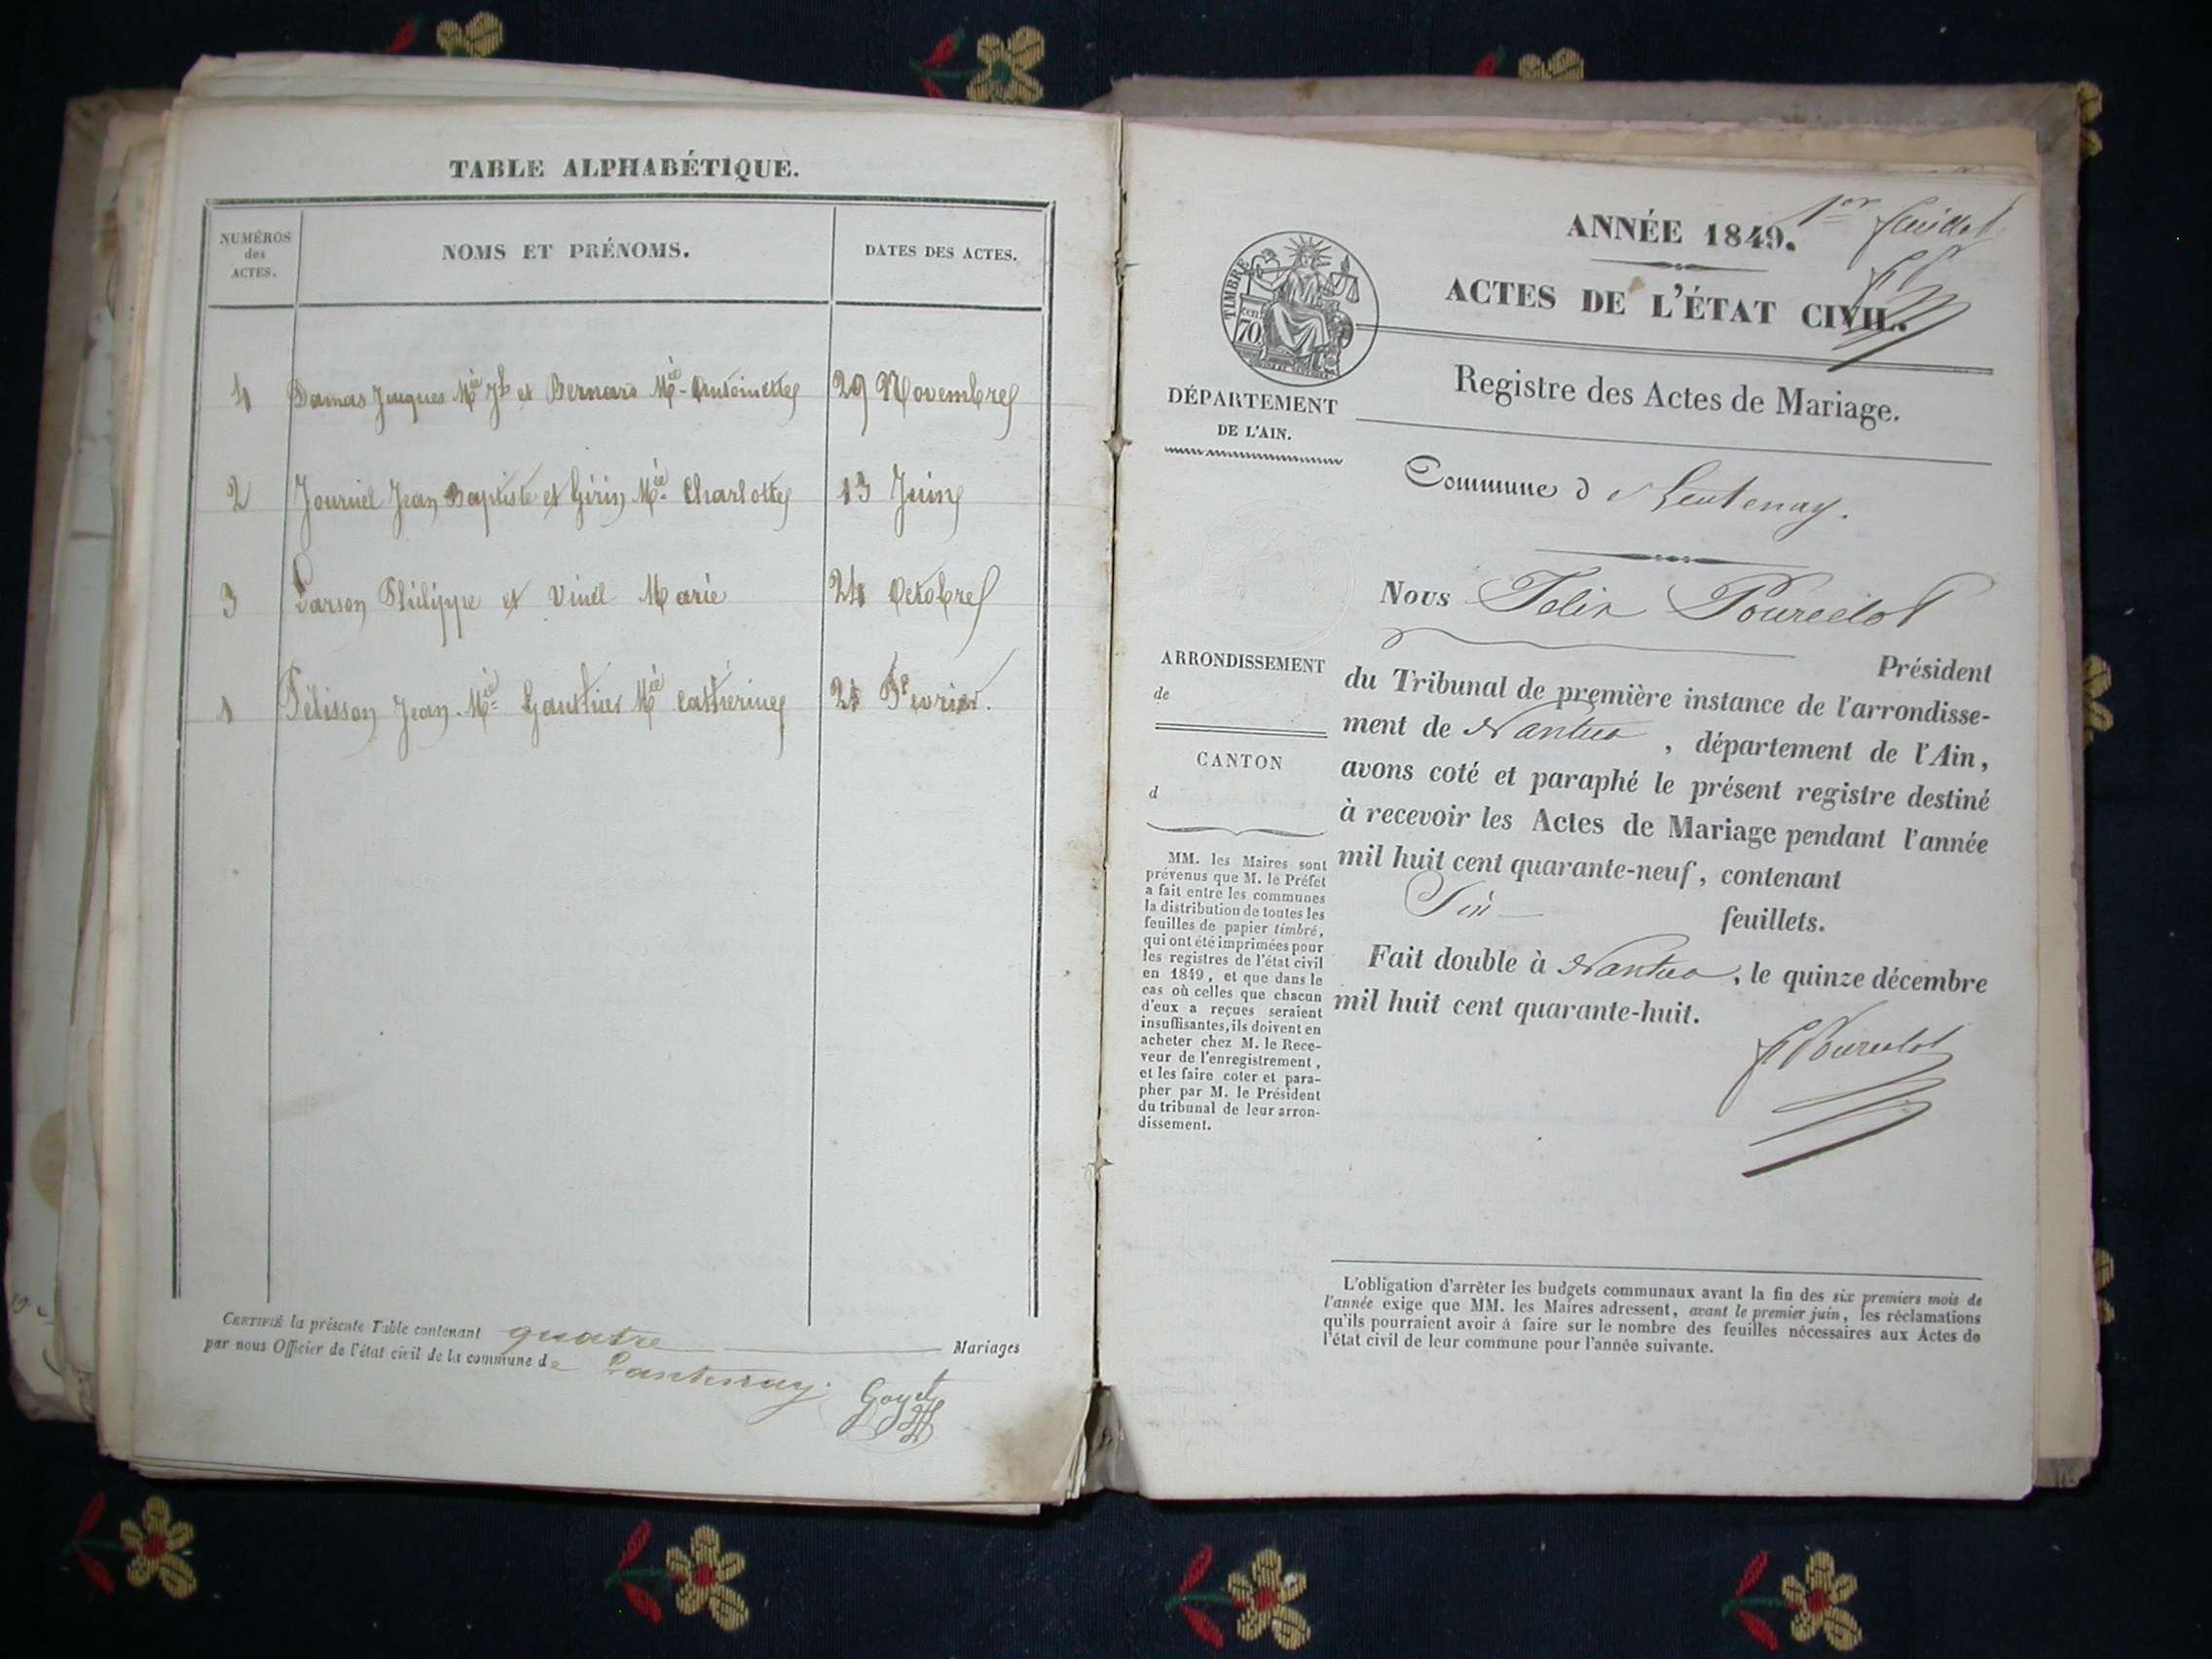 TABLE ALPHABÉTIQUE.
NUMÉROS
des
ACTES.
NOMS ET PRÉNOMS.
DATES DES ACTES.
4 Damas Jacques Mie Jh et Bernard Mie Antoinette 29 Novembre
2 Journel Jean Baptiste et Girin Mie Charlotte 13 Juin
3 Larson Philippe et Vinel Marie 24 Octobre
1 Pélisson Jean Mie Gauthier Mie Catherine 24 Février.
CERTIFIÉ la présente Table contenant quatre Mariages
par nous Officier de l'état civil de la commune de Lantenay.
Goyet
1er feuillet
ANNÉE 1849.
ACTES DE L'ÉTAT CIVIL.
TIMBRE
70 cen
Registre des Actes de Mariage.
DÉPARTEMENT
DE L'AIN.
Commune de Lantenay.
Nous Felix Pourcelot
Président
du Tribunal de première instance de l'arrondisse-
ment de Nantua, département de l'Ain,
avons coté et paraphé le présent registre destiné
à recevoir les Actes de Mariage pendant l'année
mil huit cent quarante-neuf, contenant
Six feuillets.
Fait double à Nantua, le quinze décembre
mil huit cent quarante-huit.
F Pourcelot
ARRONDISSEMENT
de
CANTON
d
MM. les Maires sont
prévenus que M. le Préfet
a fait entre les communes
la distribution de toutes les
feuilles de papier timbré,
qui ont été imprimées pour
les registres de l'état civil
en 1849, et que dans le
cas où celles que chacun
d'eux a reçues seraient
insuffisantes, ils doivent en
acheter chez M. le Rece-
veur de l'enregistrement,
et les faire coter et para-
pher par M. le Président
du tribunal de leur arron-
dissement.
L'obligation d'arrêter les budgets communaux avant la fin des six premiers mois de
l'année exige que MM. les Maires adressent, avant le premier juin, les réclamations
qu'ils pourraient avoir à faire sur le nombre des feuilles nécessaires aux Actes de
l'état civil de leur commune pour l'année suivante.